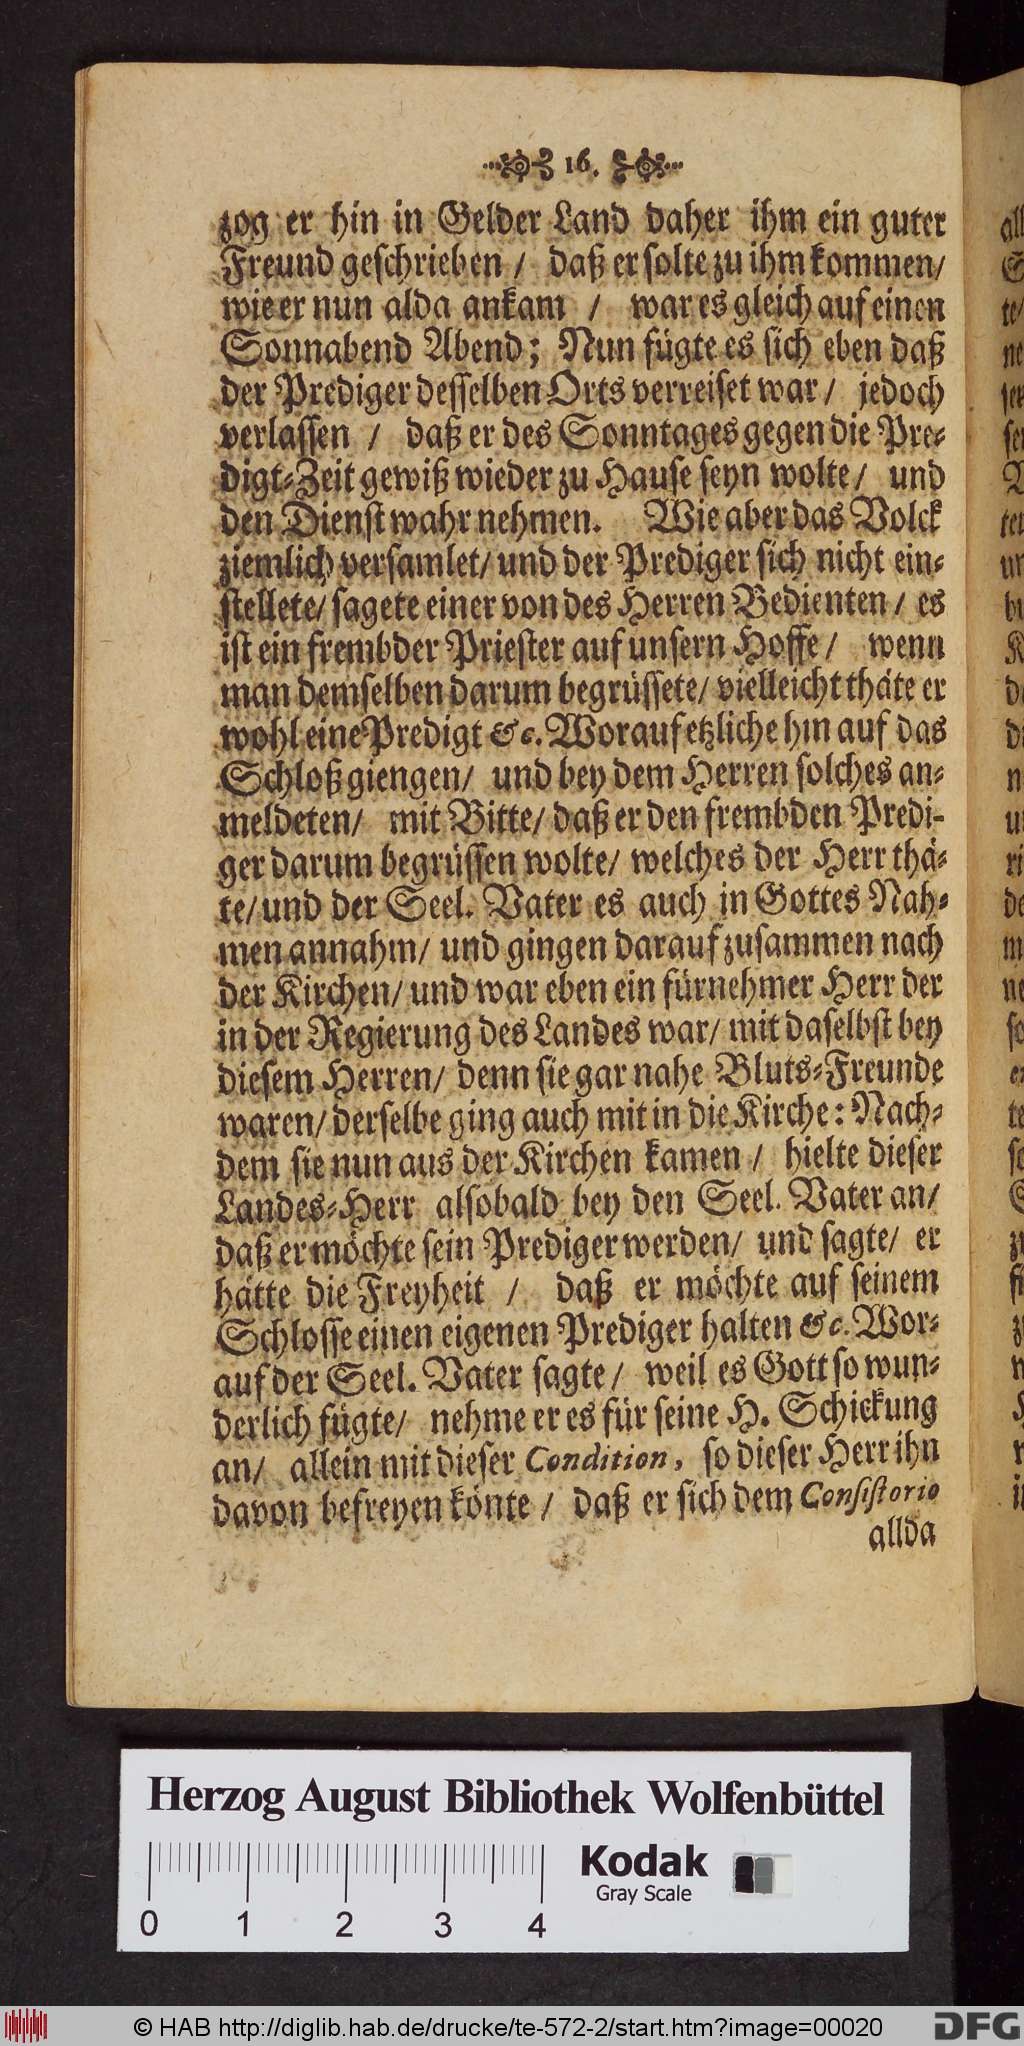 16.
zog er hin in Gelder Land daher ihm ein guter
Freund geschrieben / daß er solte zu ihm kommen/
wie er nun alda ankam / war es gleich auf einen
Sonnabend Abend; Nun fügte es sich eben daß
der Prediger desselben Orts verreiset war/ jedoch
verlassen / daß er des Sonntages gegen die Pre-
digt-Zeit gewiß wieder zu Hause seyn wolte/ und
den Dienst wahr nehmen. Wie aber das Volck
ziemlich versamlet/ und der Prediger sich nicht ein-
stellete/ sagete einer von des Herren Bedienten / es
ist ein frembder Priester auf unsern Hoffe / wenn
man demselben darum begrüssete/ vielleicht thäte er
wohl eine Predigt &c. Worauf etzliche hin auf das
Schloß giengen/ und bey dem Herren solches an-
meldeten/ mit Bitte/ daß er den frembden Predi-
ger darum begrüssen wolte/ welches der Herr thä-
te/ und der Seel. Vater es auch in Gottes Nah-
men annahm/ und gingen darauf zusammen nach
der Kirchen/ und war eben ein fürnehmer Herr der
in der Regierung des Landes war/ mit daselbst bey
diesem Herren/ denn sie gar nahe Bluts-Freunde
waren/ derselbe ging auch mit in die Kirche: Nach-
dem sie nun aus der Kirchen kamen / hielte dieser
Landes-Herr alsobald bey den Seel. Vater an/
daß er möchte sein Prediger werden/ und sagte/ er
hätte die Freyheit / daß er möchte auf seinem
Schlosse einen eigenen Prediger halten &c. Wor-
auf der Seel. Vater sagte / weil es Gott so wun-
derlich fügte/ nehme er es für seine H. Schickung
an/ allein mit dieser Condition, so dieser Herr ihn
davon befreyen könte / daß er sich dem Consistorio
allda
Herzog August Bibliothek Wolfenbüttel
Kodak
Gray Scale
0 1 2 3 4
© HAB http://diglib.hab.de/drucke/te-572-2/start.htm?image=00020
DFG